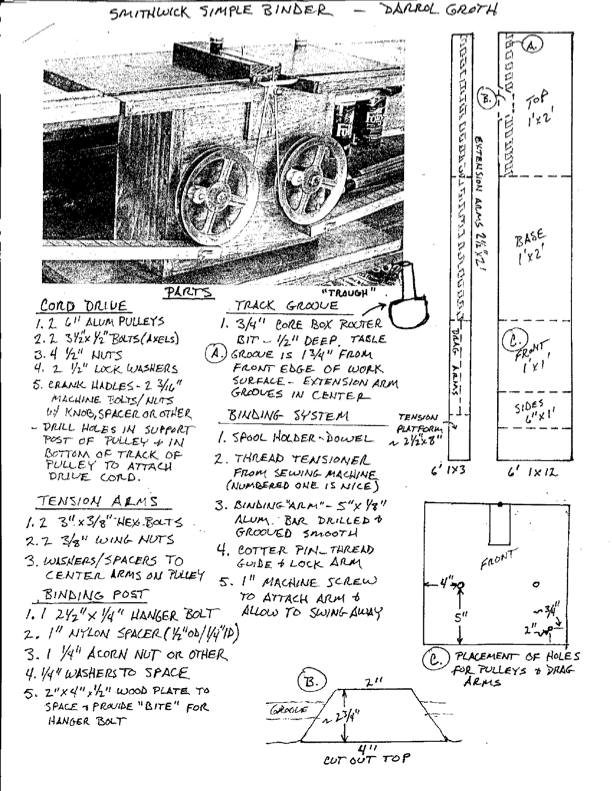 SMITHWICK SIMPLE BINDER - DARROL GROTH
PARTS
CORD DRIVE
1. 2 6" ALUM PULLEYS
2. 2 3½x½" BOLTS (AXELS)
3. 4 ½" NUTS
4. 2 ½" LOCK WASHERS
5. CRANK HADLES - 2 3/16"
MACHINE BOLTS/NUTS
W/ KNOB, SPACER OR OTHER
- DRILL HOLES IN SUPPORT
POST OF PULLEY & IN
BOTTOM OF TRACK OF
PULLEY TO ATTACH
DRIVE CORD.
TENSION ARMS
1. 2 3" x 3/8" HEX. BOLTS
2. 2 3/8" WING NUTS
3. WASHERS/SPACERS TO
CENTER ARMS ON PULLEY
BINDING POST
1. 1 2½" x ¼" HANGER BOLT
2. 1" NYLON SPACER (½"OD/¼"ID)
3. 1 ¼" ACORN NUT OR OTHER
4. ¼" WASHERS TO SPACE
5. 2" x 4" x ½" WOOD PLATE TO
SPACE & PROVIDE "BITE" FOR
HANGER BOLT
"TROUGH"
TRACK GROOVE
1. 3/4" CORE BOX ROUTER
BIT - ½" DEEP. TABLE
A. GROOVE IS 1 3/4" FROM
FRONT EDGE OF WORK
SURFACE - EXTENSION ARM
GROOVES IN CENTER
BINDING SYSTEM
1. SPOOL HOLDER - DOWEL
2. THREAD TENSIONER
FROM SEWING MACHINE
(NUMBERED ONE IS NICE)
3. BINDING "ARM" - 5" x 1/8"
ALUM. BAR DRILLED &
GROOVED SMOOTH
4. COTTER PIN - THREAD
GUIDE & LOCK ARM
5. 1" MACHINE SCREW
TO ATTACH ARM &
ALLOW TO SWING AWAY
EXTENSION ARMS 2½ x 2'
DRAG ARMS
TENSION
PLATFORM
~ 2½" x 8"
6' 1x3
A.
B.
TOP
1' x 2'
BASE
1' x 2'
C.
FRONT
1' x 1'
SIDES
6" x 1'
6' 1x12
FRONT
4"
5"
~ 3/4"
2"
C. PLACEMENT OF HOLES
FOR PULLEYS & DRAG
ARMS
B.
2"
GROOVE
~ 2 3/4"
4"
CUT OUT TOP